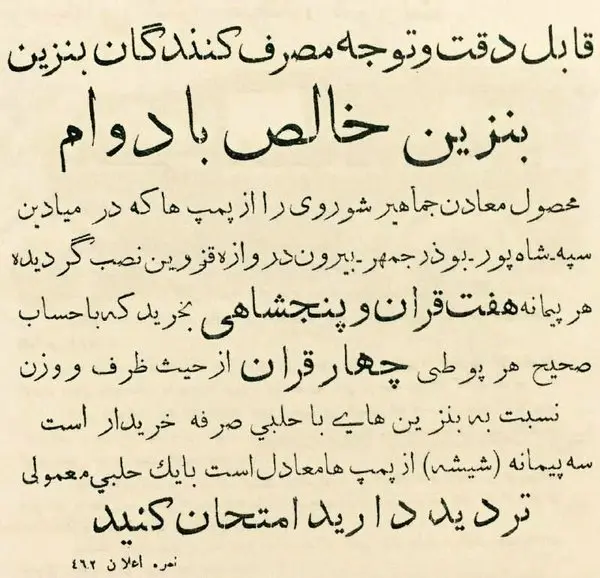 قابل دقت و توجه مصرف کنندگان بنزین
بنزین خالص با دوام
محصول معادن جماهیر شوروی را از پمپ ها که در میادین
سپه-شاه پور-بوذرجمهر-بیرون دروازه قزوین نصب گردیده
هر پیمانه هفت قران و پنجشاهی بخرید که با حساب
صحیح هر پوطی چهار قران از حیث ظرف و وزن
نسبت به بنزین هایے با حلبي صرفه خریدار است
سه پیمانه (شیشه) از پمپ ها معادل است با یك حلبي معمولی
تردید دارید امتحان کنید
نمره اعلان ٤٦٢